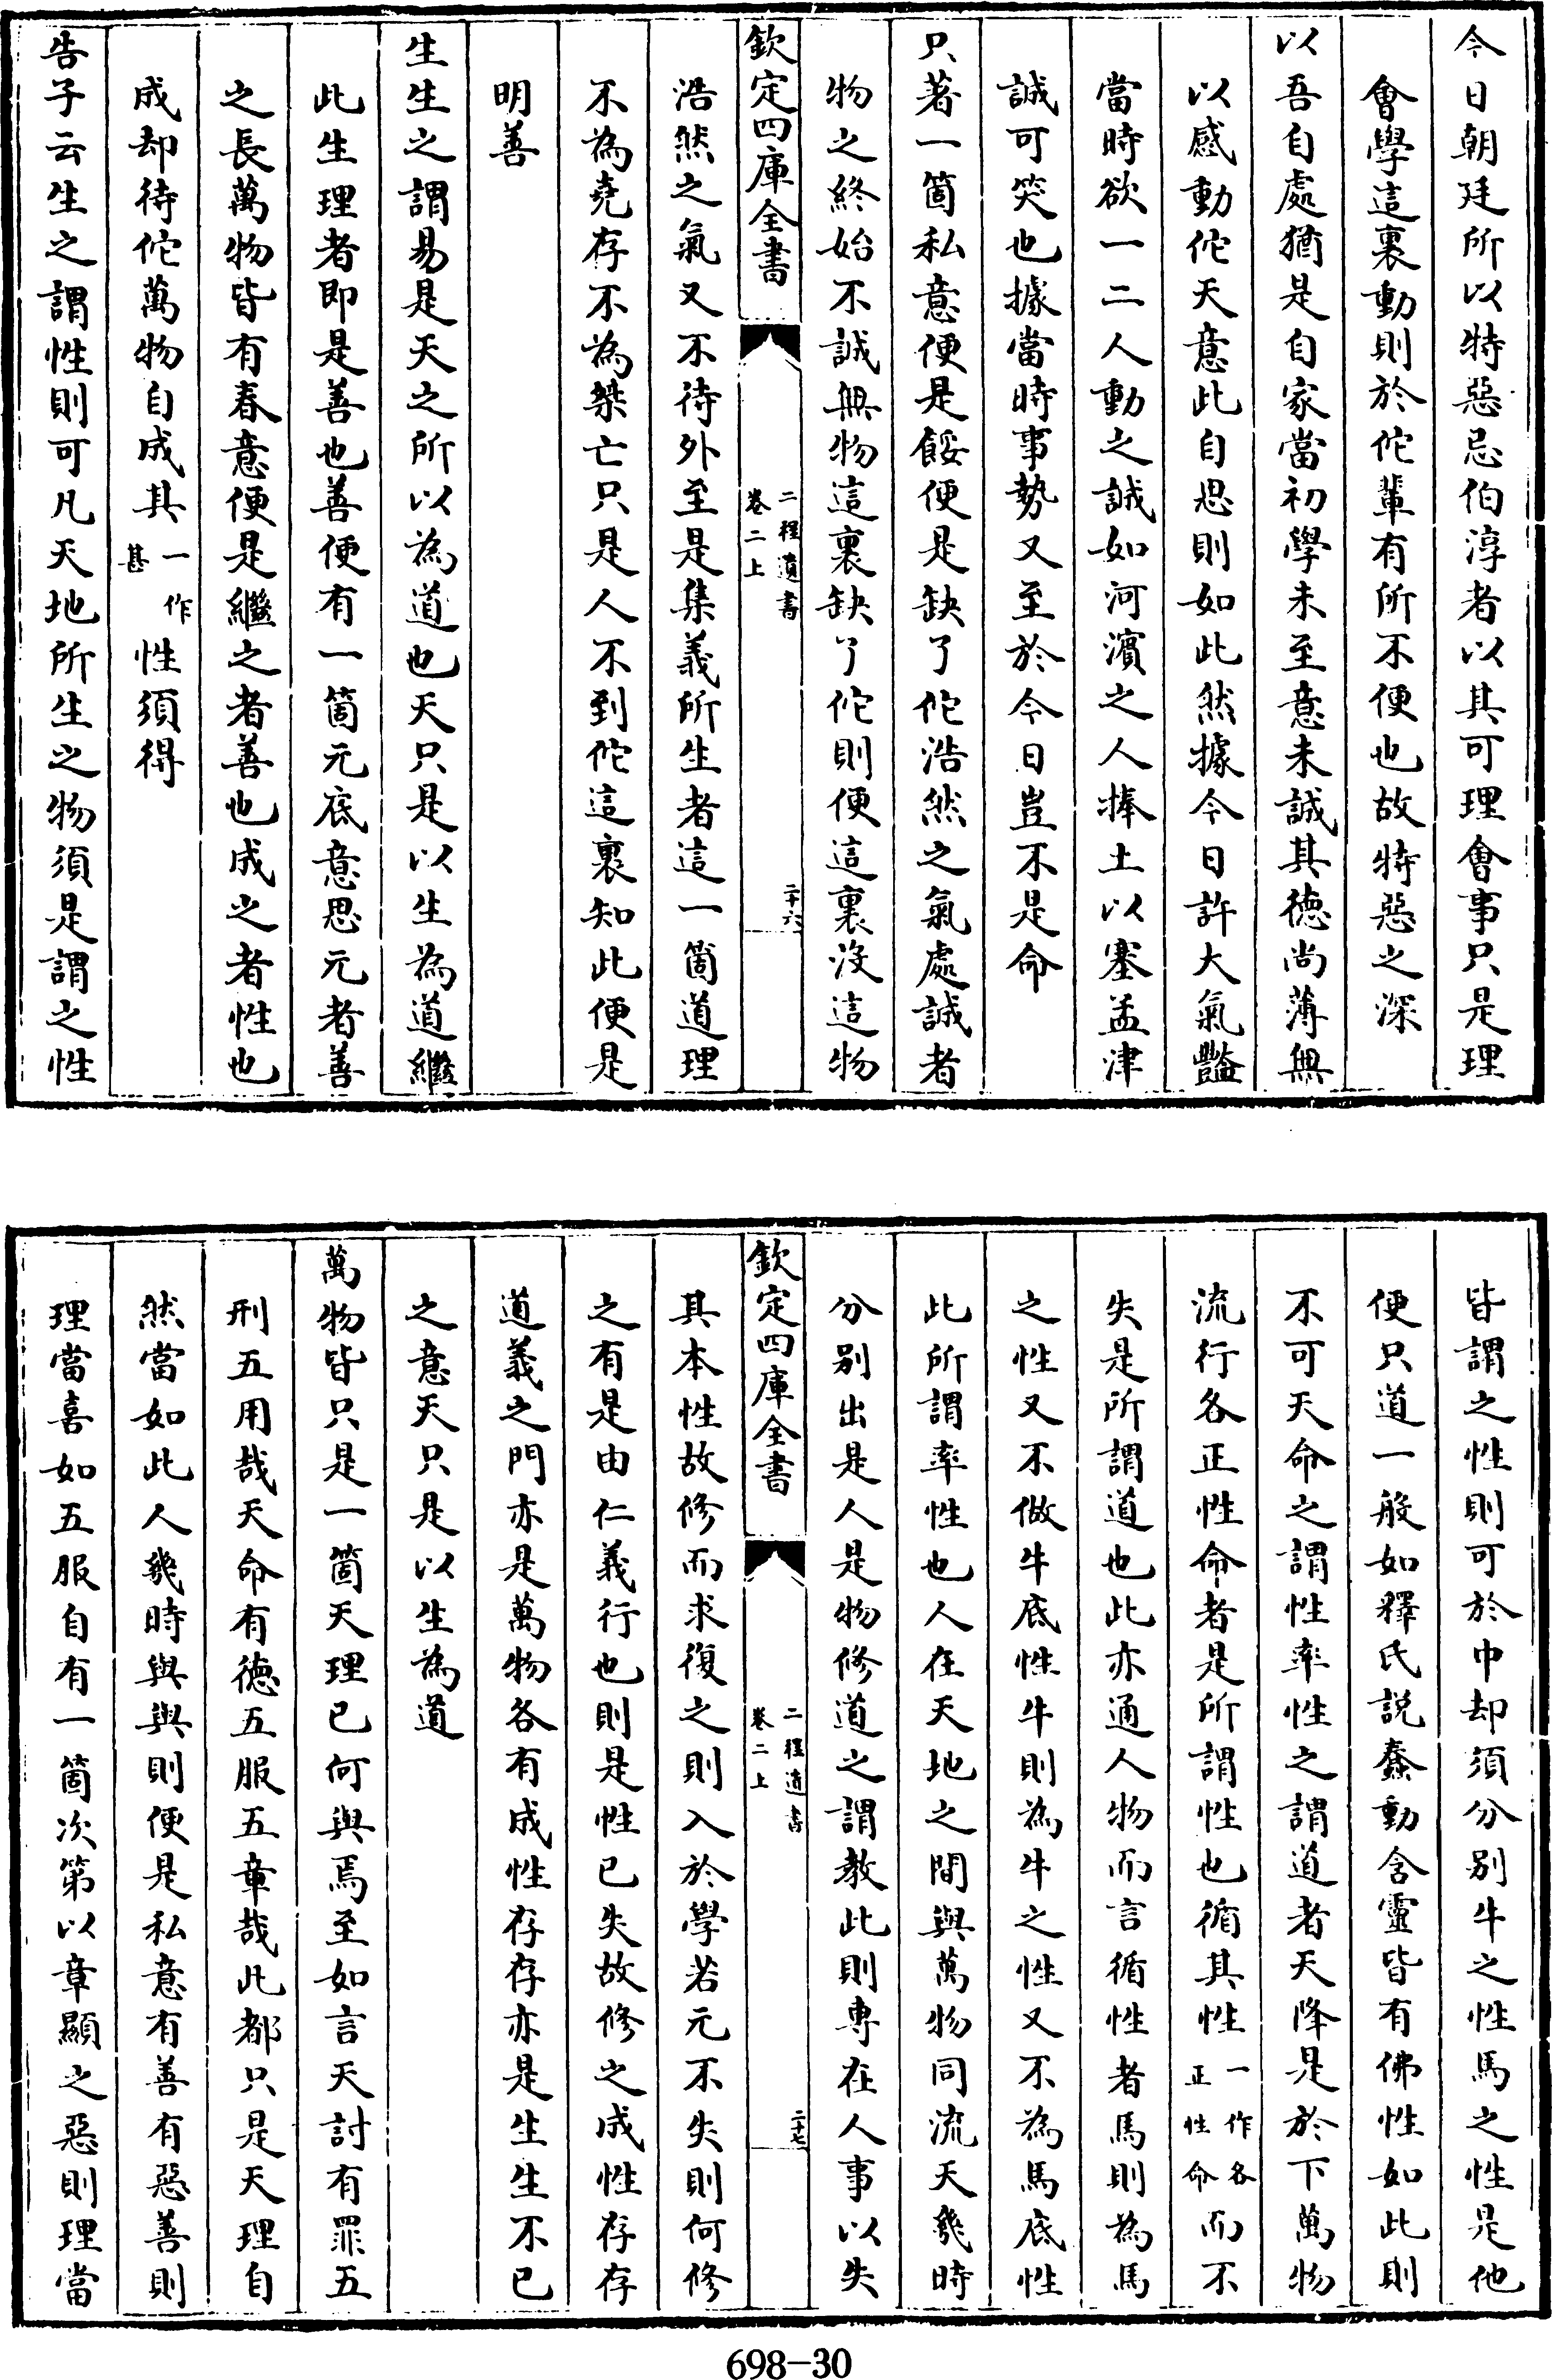 今日朝廷所以特惡忌伯淳者以其可理會事只是理
會學這裏動則於佗輩有所不便也故特惡之深
以吾自處猶是自家當初學未至意未誠其德尚薄無
以感動佗天意此自思則如此然據今日許大氣豔
當時欲一二人動之誠如河濱之人捧土以塞孟津
誠可笑也據當時事勢又至於今日豈不是命
只著一箇私意便是餒便是缺了佗浩然之氣處誠者
物之終始不誠無物這裏缺了佗則便這裏沒這物
欽定四庫全書
二程遺書
卷二上
二十六
浩然之氣又不待外至是集義所生者這一箇道理
不為堯存不為桀亡只是人不到佗這裏知此便是
明善
生生之謂易是天之所以為道也天只是以生為道繼
此生理者即是善也善便有一箇元底意思元者善
之長萬物皆有春意便是繼之者善也成之者性也
成却待佗萬物自成其一作甚性須得
告子云生之謂性則可凡天地所生之物須是謂之性
皆謂之性則可於中却須分别牛之性馬之性是他
便只道一般如釋氏説蠢動含靈皆有佛性如此則
不可天命之謂性率性之謂道者天降是於下萬物
流行各正性命者是所謂性也循其性一作各正性命而不
失是所謂道也此亦通人物而言循性者馬則為馬
之性又不做牛底性牛則為牛之性又不為馬底性
此所謂率性也人在天地之間與萬物同流天幾時
分别出是人是物修道之謂教此則專在人事以失
欽定四庫全書
二程遺書
卷二上
二十七
其本性故修而求復之則入於學若元不失則何修
之有是由仁義行也則是性已失故修之成性存存
道義之門亦是萬物各有成性存存亦是生生不已
之意天只是以生為道
萬物皆只是一箇天理已何與焉至如言天討有罪五
刑五用哉天命有德五服五章哉此都只是天理自
然當如此人幾時與與則便是私意有善有惡善則
理當喜如五服自有一箇次第以章顯之惡則理當
698-30